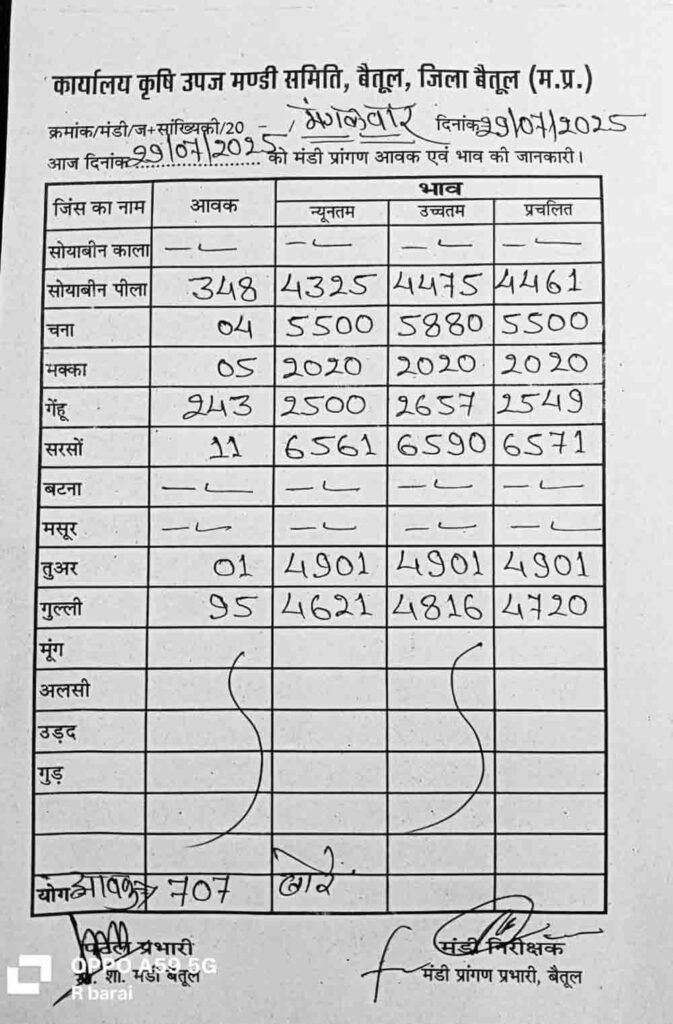 कार्यालय कृषि उपज मण्डी समिति, बैतूल, जिला बैतूल (म.प्र.)
क्रमांक/मंडी/ज+सांख्यिकी/20 - / मंगलवार दिनांक 29/07/2025
आज दिनांक 29/07/2025 को मंडी प्रांगण आवक एवं भाव की जानकारी।
जिंस का नाम आवक भाव
न्यूनतम उच्चतम प्रचलित
सोयाबीन काला -- -- -- --
सोयाबीन पीला 348 4325 4475 4461
चना 04 5500 5880 5500
मक्का 05 2020 2020 2020
गेंहू 243 2500 2657 2549
सरसों 11 6561 6590 6571
बटना -- -- -- --
मसूर -- -- -- --
तुअर 01 4901 4901 4901
गुल्ली 95 4621 4816 4720
मूंग
अलसी
उड़द
गुड़
योग आवक 707 बोरे
प्रभारी मंडी निरीक्षक
शा. मंडी बैतूल मंडी प्रांगण प्रभारी, बैतूल
OPPO A59 5G
R barai